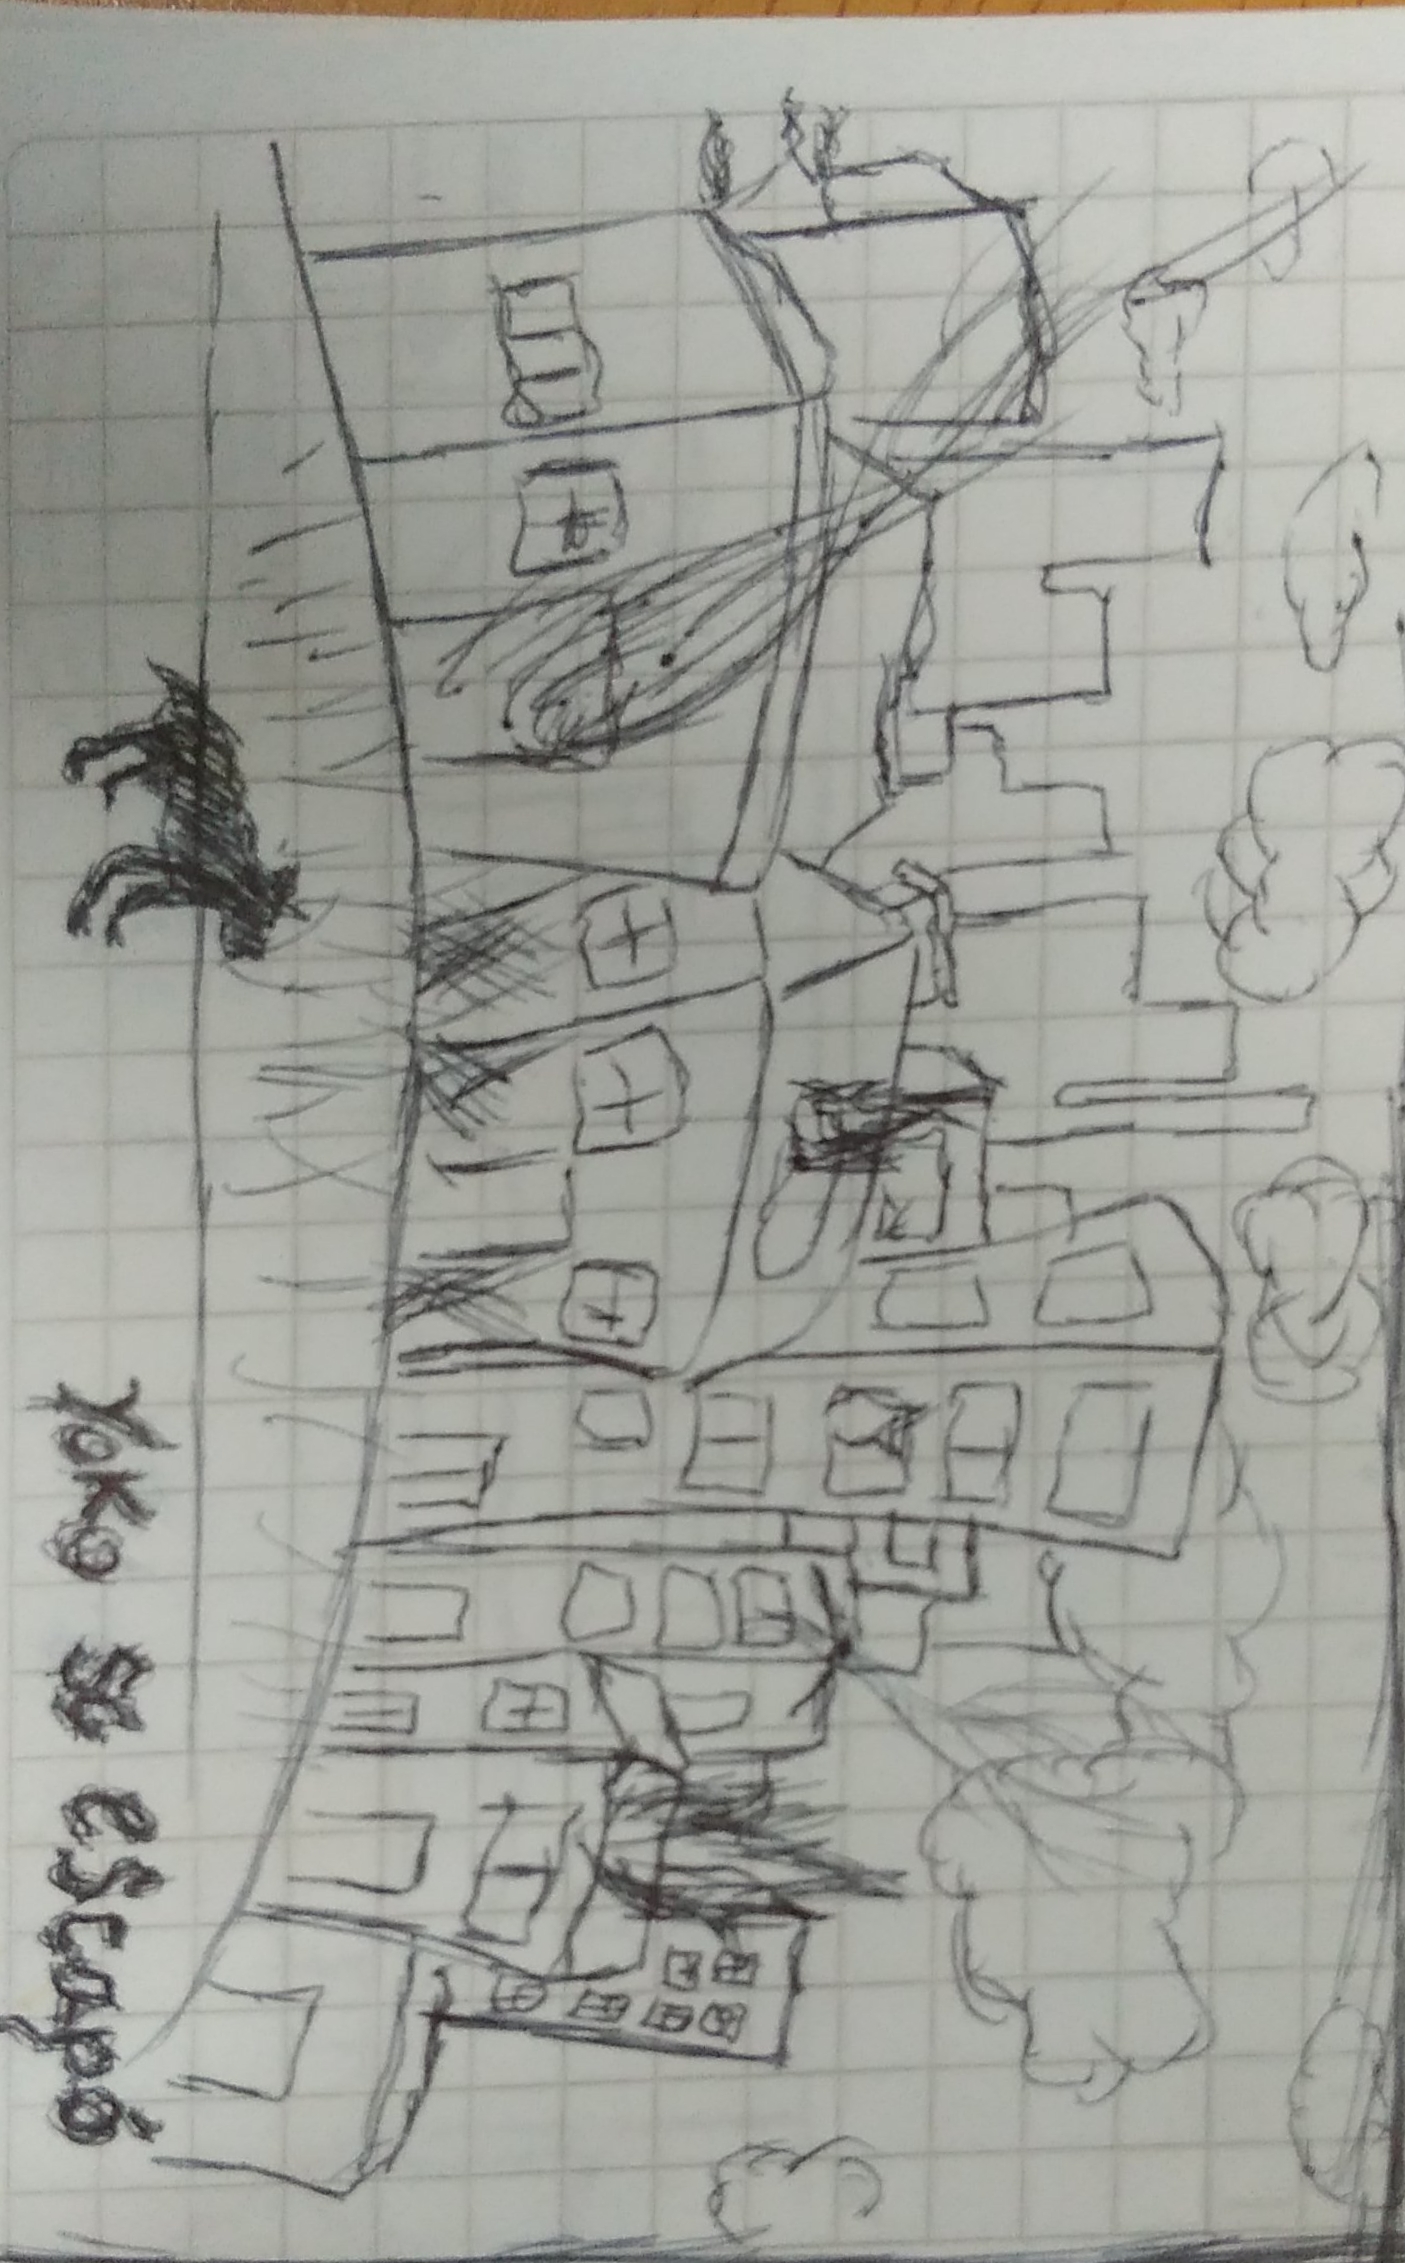 Yoko se escapó